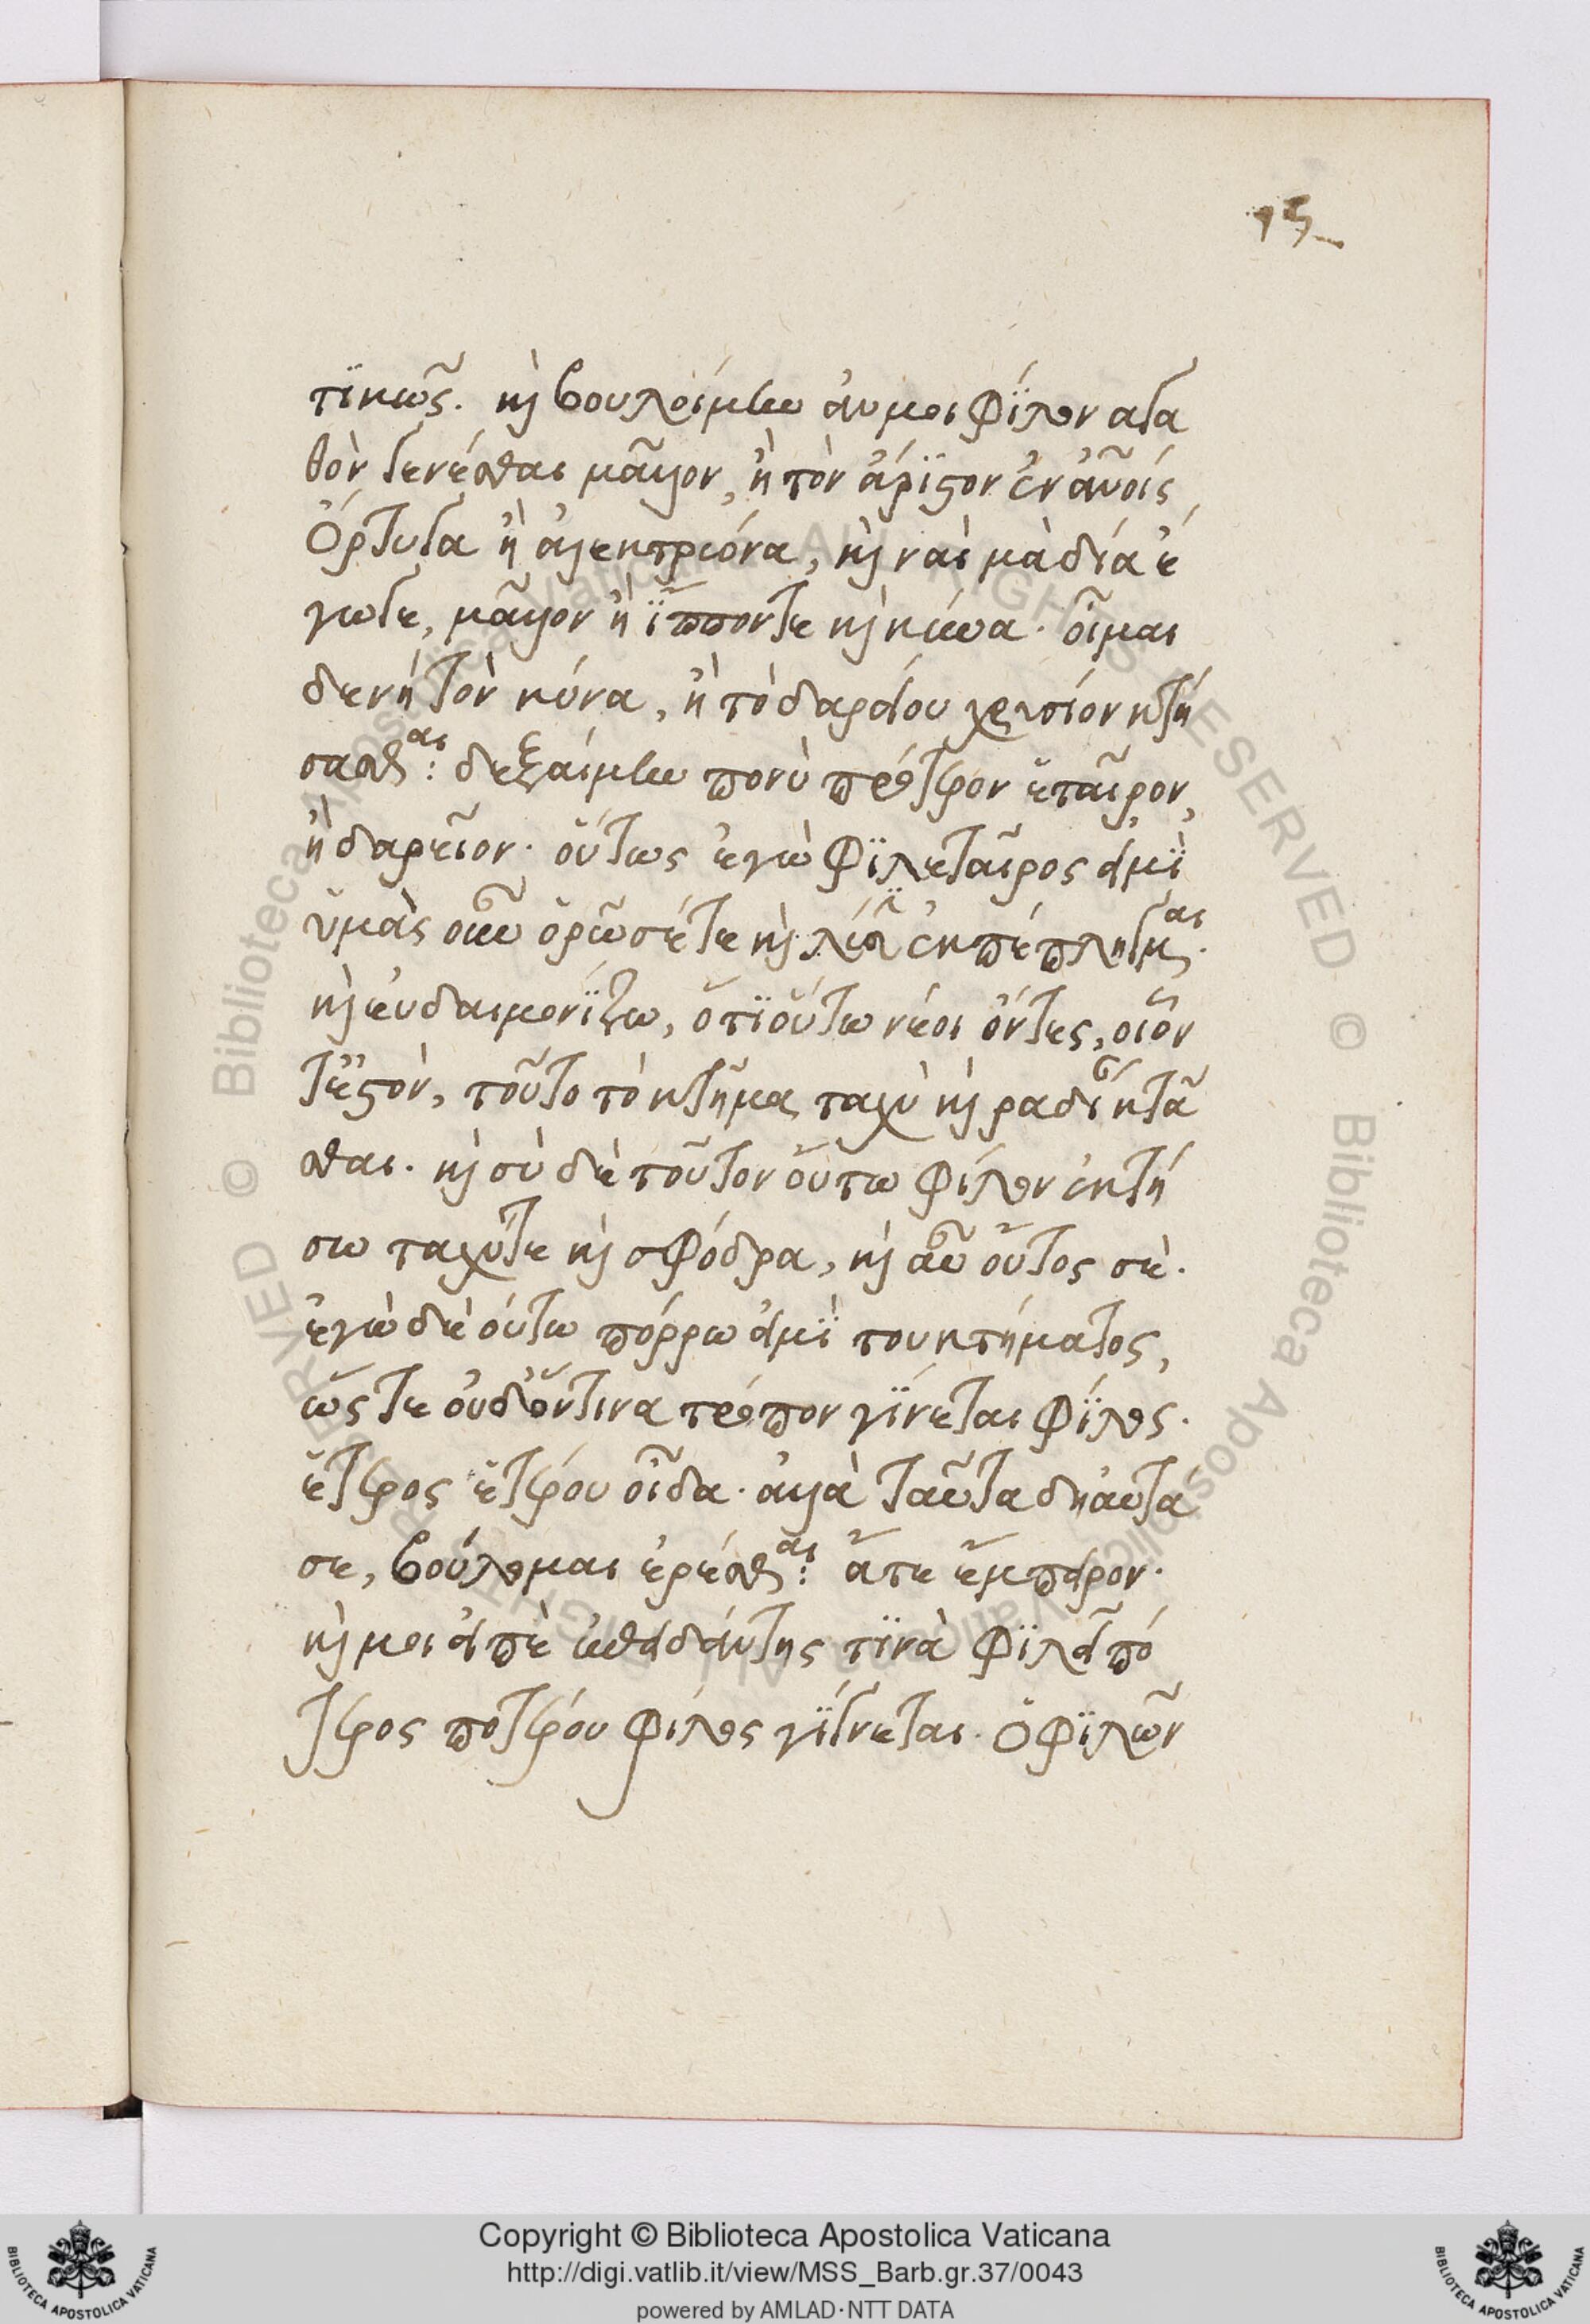 15
τϊκῶς. καὶ βουλοίμην ἄν μοι φίλον αγα
θὸν γενέσθαι μᾶλλον, ἢ τὸν ἄριστον ἐν ἀν̃οις
Ὄρτυγα ἢ ἀλεκτρυόνα, καὶ ναὶ μὰ δία ἔ
γωγε, μᾶλλον ἢ ἵππον τε καὶ κύνα. οἶμαι
δε νὴ τὸν κύνα, ἢ τὸ δαρείου χρυσίον κτή
σασθαι: δεξαίμην πολὺ πρότερον ἑταῖρον,
ἢ δαρεῖον. οὕτως ἐγὼ φϊλεταῖρος εἰμϊ
ὑμὰς οὖν ὁρῶν σέ τε καὶ λύσιν ἐκπέπληγμαι.
καὶ ἐυδαιμονίζω, ὅτϊ οὕτω νέοι ὄντες, οἷον
τἐστὸν, τοῦτο τὸ κτῆμα ταχὺ καὶ ραδίως κτᾶ
σθαι. καὶ σὺ δὲ τοῦτον οὕτω φίλον ἐκτή
σω ταχύ τε καὶ σφόδρα, καὶ αὖ οὗτος σὲ.
ἐγὼ δὲ ὁύτω πόρρω εἰμϊ του κτήματος,
ὥς τε ὀυδ' ὅντινα τρόπον γίνεται φίλος.
ἕτερος ἑτέρου οἶδα. ἀλλὰ ταῦτα δὴ ἀυτά
σε, βούλομαι ἐρέσθαι: ἅτε ἔμπειρον.
καὶ μοι εἰπὲ ἐπειδάν της τϊνὰ φϊλεῖ πό
τερος ποτέρου φίλος γίγνεται. Ὁ φϊλῶν
Copyright © Biblioteca Apostolica Vaticana
http://digi.vatlib.it/view/MSS_Barb.gr.37/0043
powered by AMLAD·NTT DATA